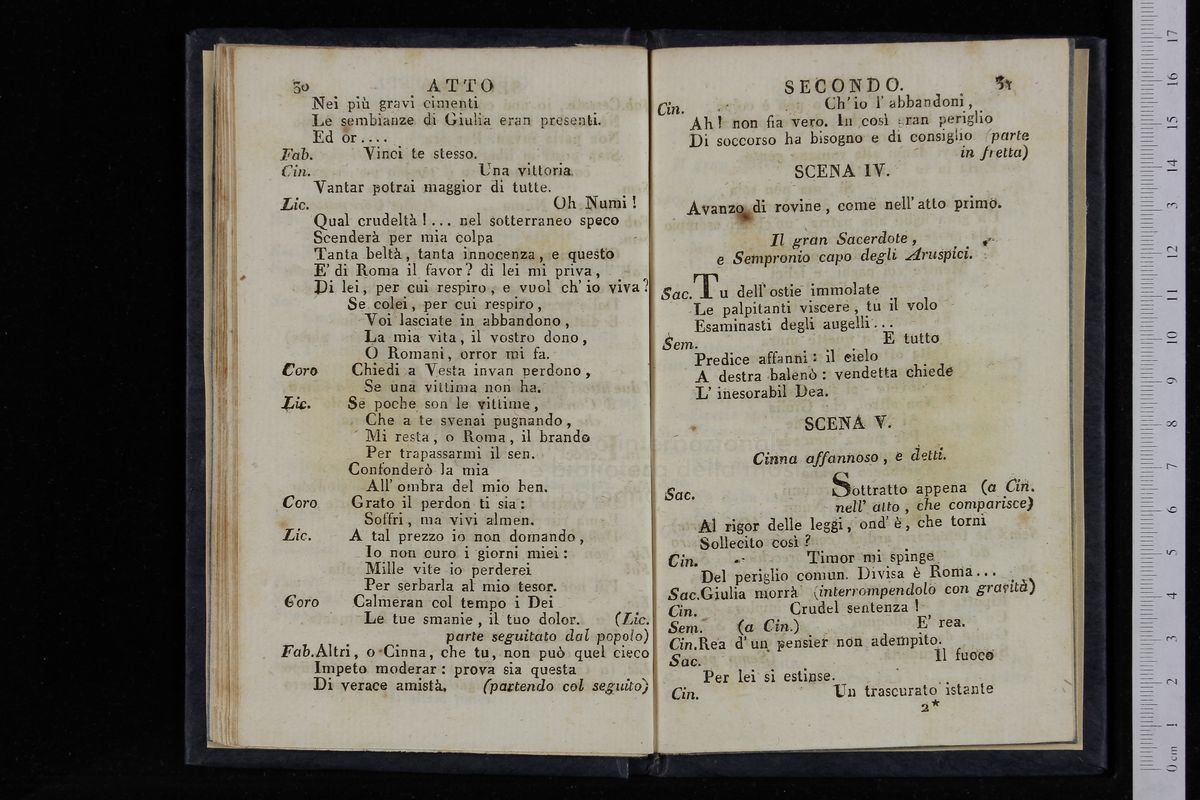 30 ATTO
Nei più gravi cimenti
Le sembianze di Giulia eran presenti.
Ed or....
Fab. Vinci te stesso.
Cin. Una vittoria
Vantar potrai maggior di tutte.
Lic. Oh Numi!
Qual crudeltà!... nel sotterraneo speco
Scenderà per mia colpa
Tanta beltà, tanta innocenza, e questo
E' di Roma il favor? di lei mi priva,
Di lei, per cui respiro, e vuol ch'io viva?
Se colei, per cui respiro,
Voi lasciate in abbandono,
La mia vita, il vostro dono,
O Romani, orror mi fa.
Coro Chiedi a Vesta invan perdono,
Se una vittima non ha.
Lic. Se poche son le vittime,
Che a te svenai pugnando,
Mi resta, o Roma, il brando
Per trapassarmi il sen.
Confonderò la mia
All' ombra del mio ben.
Coro Grato il perdon ti sia:
Soffri, ma vivi almen.
Lic. A tal prezzo io non domando,
Io non curo i giorni miei:
Mille vite io perderei
Per serbarla al mio tesor.
Coro Calmeran col tempo i Dei
Le tue smanie, il tuo dolor. (Lic.
parte seguitato dal popolo)
Fab. Altri, o Cinna, che tu, non può quel cieco
Impeto moderar: prova sia questa
Di verace amistà. (partendo col seguito)
SECONDO. 31
Cin. Ch'io l'abbandoni,
Ah! non fia vero. In così gran periglio
Di soccorso ha bisogno e di consiglio (parte
in fretta)
SCENA IV.
Avanzo di rovine, come nell'atto primo.
Il gran Sacerdote,
e Sempronio capo degli Aruspici.
Sac. Tu dell'ostie immolate
Le palpitanti viscere, tu il volo
Esaminasti degli augelli...
Sem. E tutto
Predice affanni: il cielo
A destra balenò: vendetta chiede
L' inesorabil Dea.
SCENA V.
Cinna affannoso, e detti.
Sac. Sottratto appena (a Cin.
nell' atto, che comparisce)
Al rigor delle leggi, ond'è, che torni
Sollecito così?
Cin. Timor mi spinge
Del periglio comun. Divisa è Roma...
Sac. Giulia morrà (interrompendolo con gravità)
Cin. Crudel sentenza!
Sem. (a Cin.) E' rea.
Cin. Rea d'un pensier non adempito.
Sac. Il fuoco
Per lei si estinse.
Cin. Un trascurato istante
2*
0 cm 1 2 3 4 5 6 7 8 9 10 11 12 3 14 15 16 17